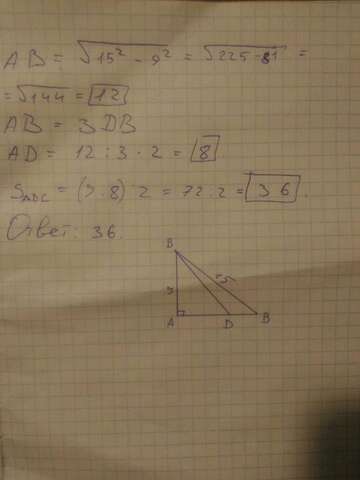 AB = √15² - 9² = √225-81 =
= √144 = 12
AB = 3DB
AD = 12 : 3 · 2 = 8
SADC = (9·8) : 2 = 72 : 2 = 36.
Ответ: 36.
B
15
9
A
D
B